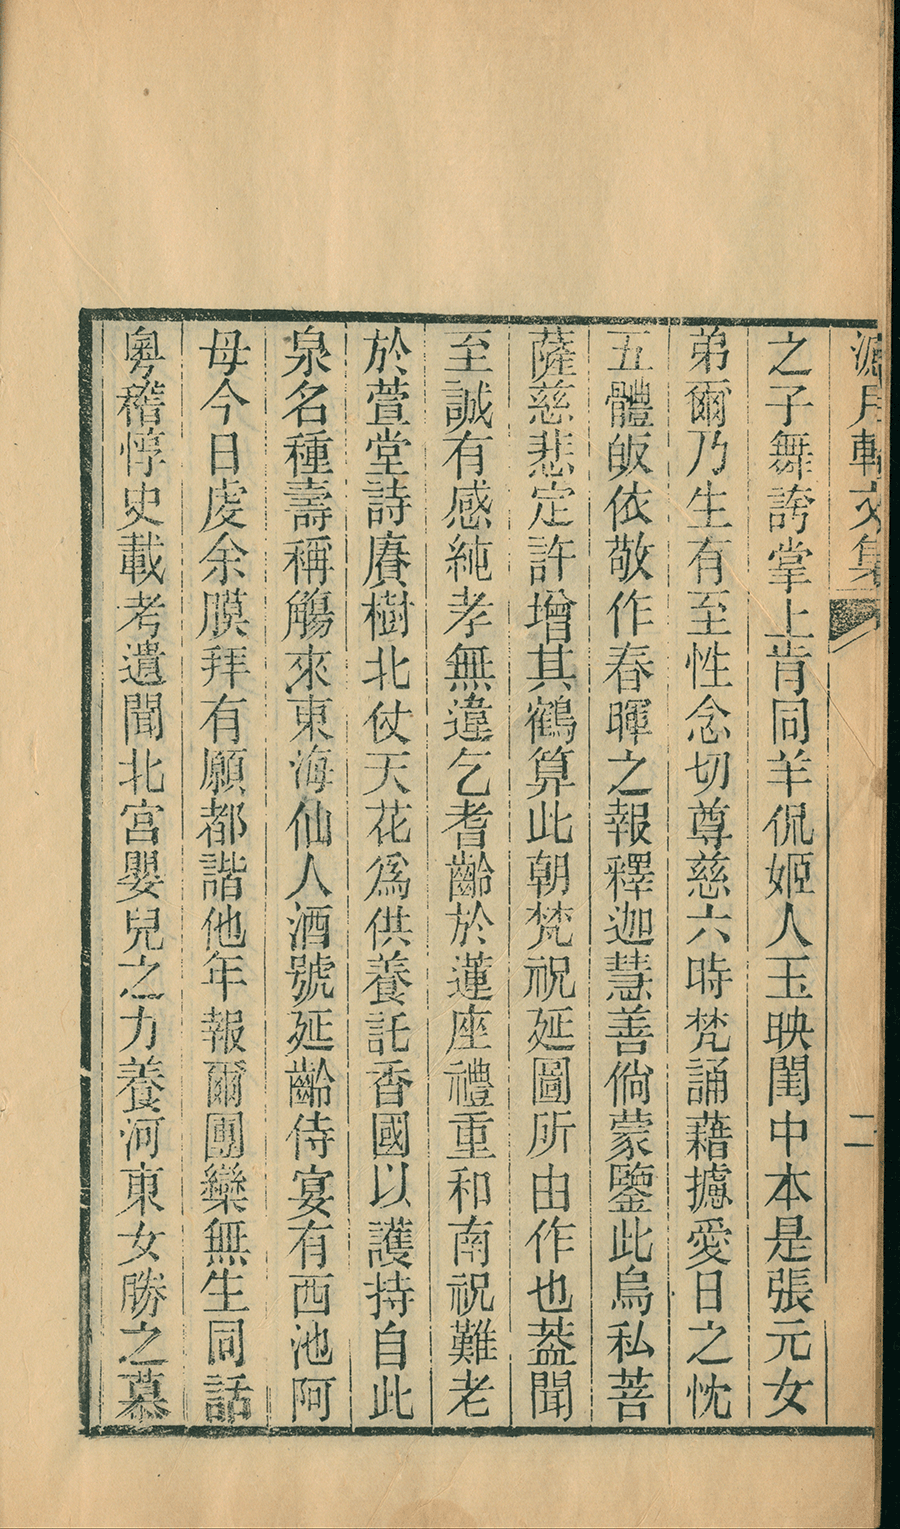 月軒文集
二
之子舞誇掌上肯同羊侃姬人玉映閨中本是張元女
弟爾乃生有至性念切尊慈六時梵誦藉攄愛日之忱
五體皈依敬作春暉之報釋迦慧善倘蒙鑒此烏私菩
薩慈悲定許增其鶴算此朝梵祝延圖所由作也葢聞
至誠有感純孝無違乞耆齡於蓮座禮重和南祝難老
於萱堂詩賡樹北仗天花爲供養託香國以護持自此
泉名種壽稱觴來東海仙人酒號延齡侍宴有西池阿
母今日虔余膜拜有願都諧他年報爾團欒無生同話
粵稽惇史載考遺聞北宮嬰兒之力養河東女勝之慕